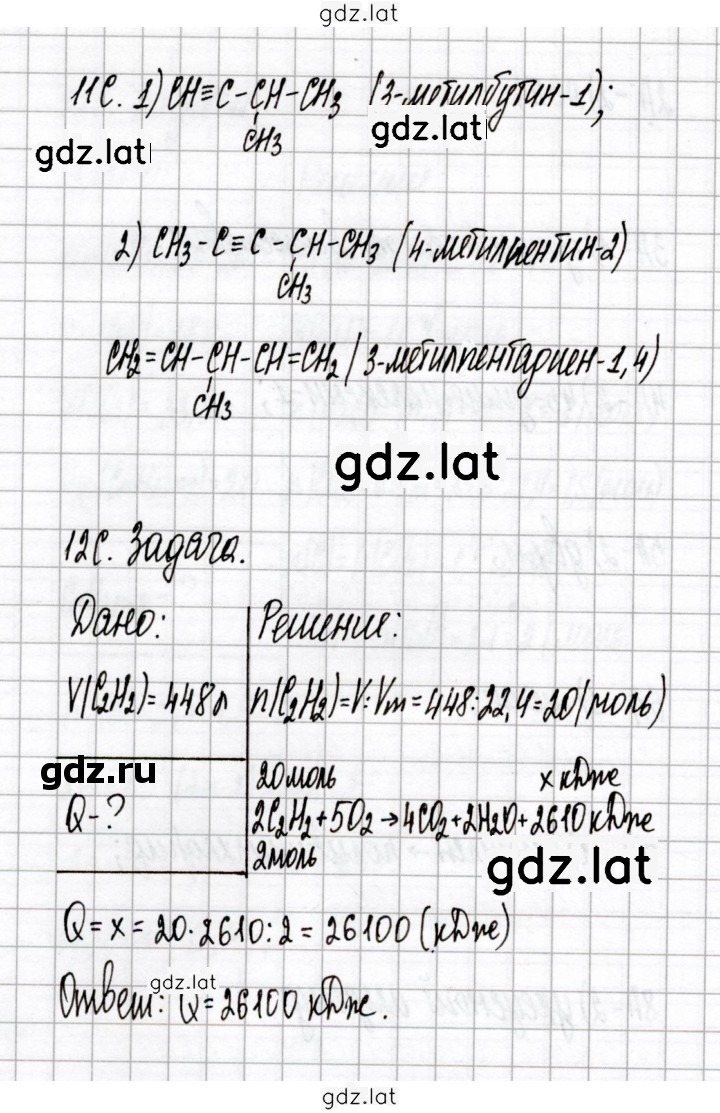 gdz.lat
11С. 1) CH≡C-CH-CH3 (3-метилбутин-1);
CH3
gdz.lat
gdz.lat
2) CH3-C≡C-CH-CH3 (4-метилпентин-2)
CH3
CH2=CH-CH-CH=CH2 (3-метилпентадиен-1,4)
CH3
gdz.lat
12С. Задача.
Дано: Решение:
V(C2H2)=448л n(C2H2)=V:Vm=448:22,4=20(моль)
gdz.ru
20моль x кДж
Q-? 2C2H2+5O2→4CO2+2H2O+2610кДж
2моль
gdz.lat
Q=x=20·2610:2=26100(кДж)
gdz.lat
Ответ: Q=26100 кДж.
gdz.lat